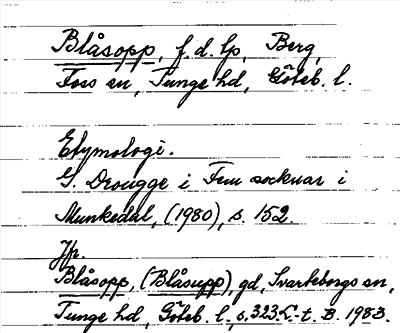 Blåsopp, f.d. lp, Berg,
Foss sn, Tunge hd, Göteb. l.
Etymologi.
G. Drougge i Fem socknar i
Munkedal, (1980), s. 152.
Jfr.
Blåsopp, (Blåsupp), gd, Svarteborgs sn,
Tunge hd, Göteb. l., s. 323. L.-t. B. 1983.